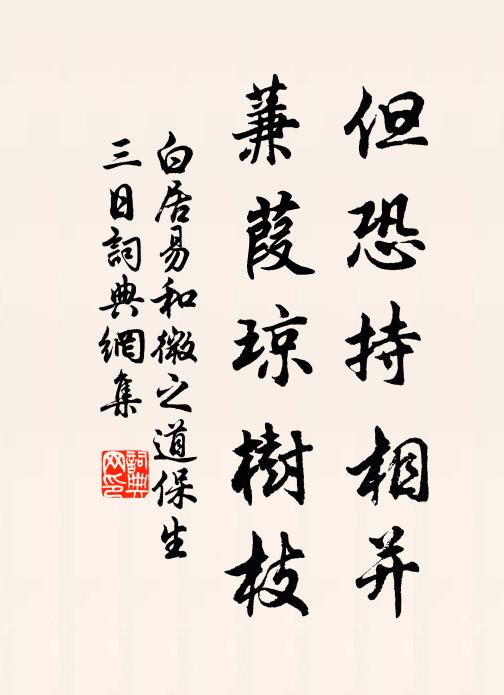 但恐持相并
蒹葭琼樹枝
白居易和微之道保生
三日詞典網集
詞典网印